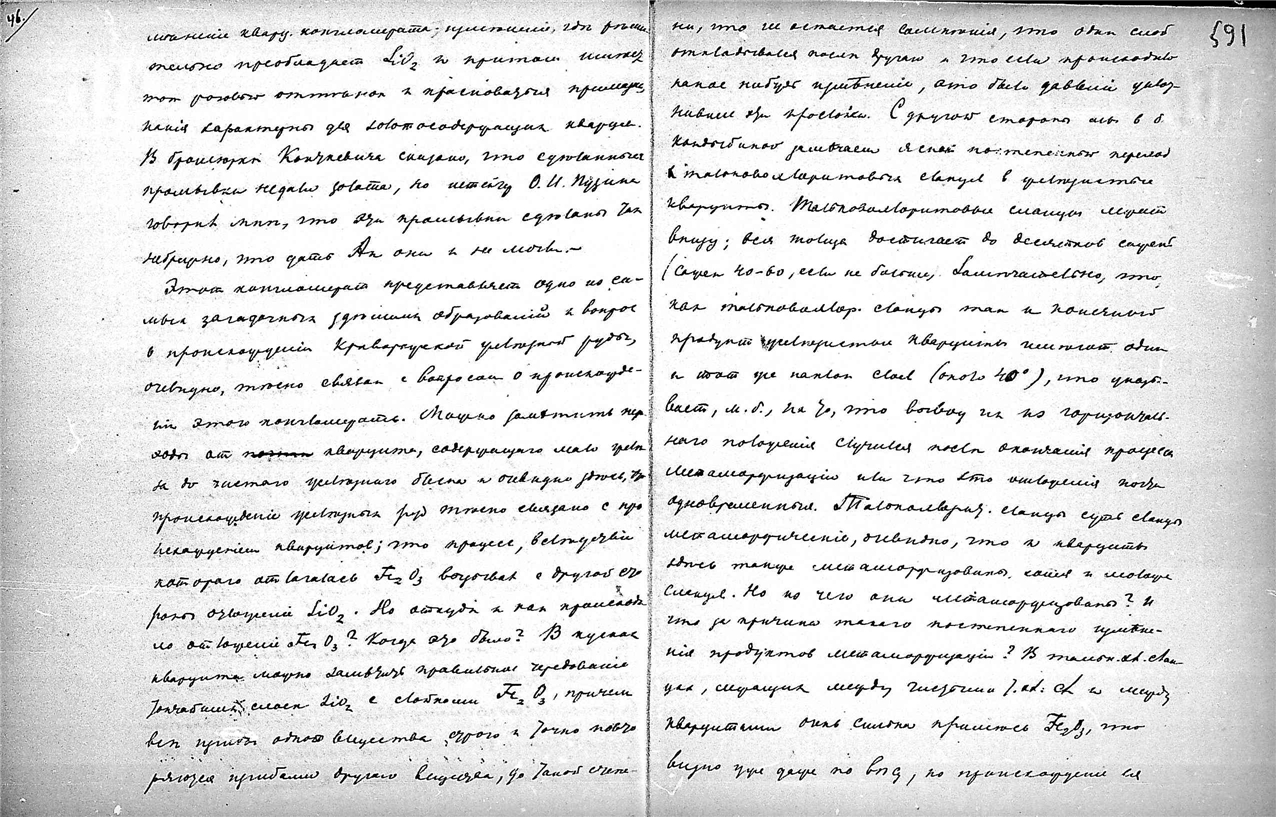 46.
кварц. конгломерата;
тельно преобладает SiO2 и притом имеет
тот розовый оттенок и
характерны для золотосодержащих кварцев.
В брошюрке Конткевича сказано, что сделанныя
промывки не дали золота, но штейгер О. И. Пузина
говорит мне, что эти промывки сделаны так
небрежно, что дать Au они и не могли. —
Этот конгломерат представляет одно из са-
мых загадочных здешних образований и вопрос
о происхождении Криворожской железной руды,
очевидно, тесно связан с вопросом о происхожде-
нии этого конгломерата. Можно заметить пере-
ходы от кварцита, содержащего мало желе-
за до чистого железного блеска и очевидно здесь,
происхождение железных руд тесно связано с про
исхождением кварцитов; это процесс, вследствие
которого отлагалась Fe2O3 вызывал с другой сто
роны отложение SiO2. Но откуда и как происходи
ло отложение Fe2O3? Когда это было? В кусках
кварцита можно заметить правильное чередование
тончайших слоев SiO2 с слойками Fe2O3, причем
все изгибы одного вещества строго и точно повто
ряются изгибами другого вещества, до такой степе-
591
ни, что не остается сомнения, что один слой
откладывался после другого и что если происходило
какое нибудь изменение, то было давление
эти прослойки. С другой стороны мы в б.
Кандыбиной замечаем ясный постепенный переход
тальковохлоритовых сланцев в железистые
кварциты. Тальковохлоритовые сланцы лежат
внизу; вся толща достигает до десятков сажен
(сажен 40-60, если не больше). Замечательно, что
как тальковохлор. сланцы так и конечный
продукт железистые кварциты имеют один
и тот же наклон слоев (около 40°), что указы-
вает, м. б., на то, что вывод их из горизонталь-
ного положения случился после окончания процесса
метаморфизации или что эти явления почти
одновременны. Тальковохлорит. сланцы суть сланцы
метаморфические, очевидно, что и кварциты
здесь также метаморфизованы,
сланцы. Но из чего они метаморфизованы? И
что за причина такого постепенного измене-
ния продуктов метаморфизации? В тальк.-хл. слан-
цах, лежащих между чистыми т.хл. сл. и между
кварцитами очень сильна примесь Fe2O3, что
видно уже даже по виду, но происхождение ея